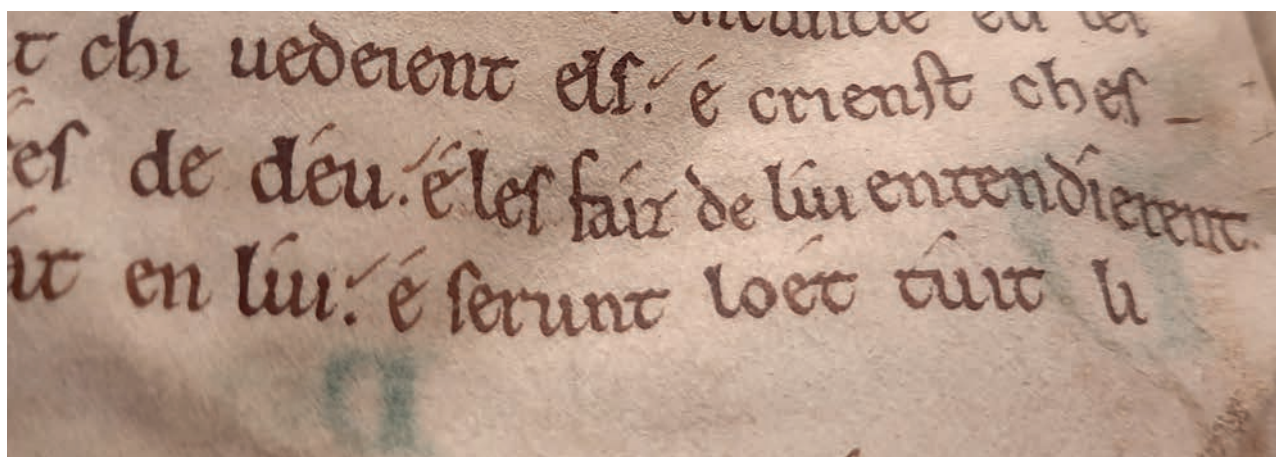 t chi uedeient elſ. é crienſt cheſ_
eſ de déu. é leſ faiz de lui entendierent.
it en lui. é ſerunt loét tuit li